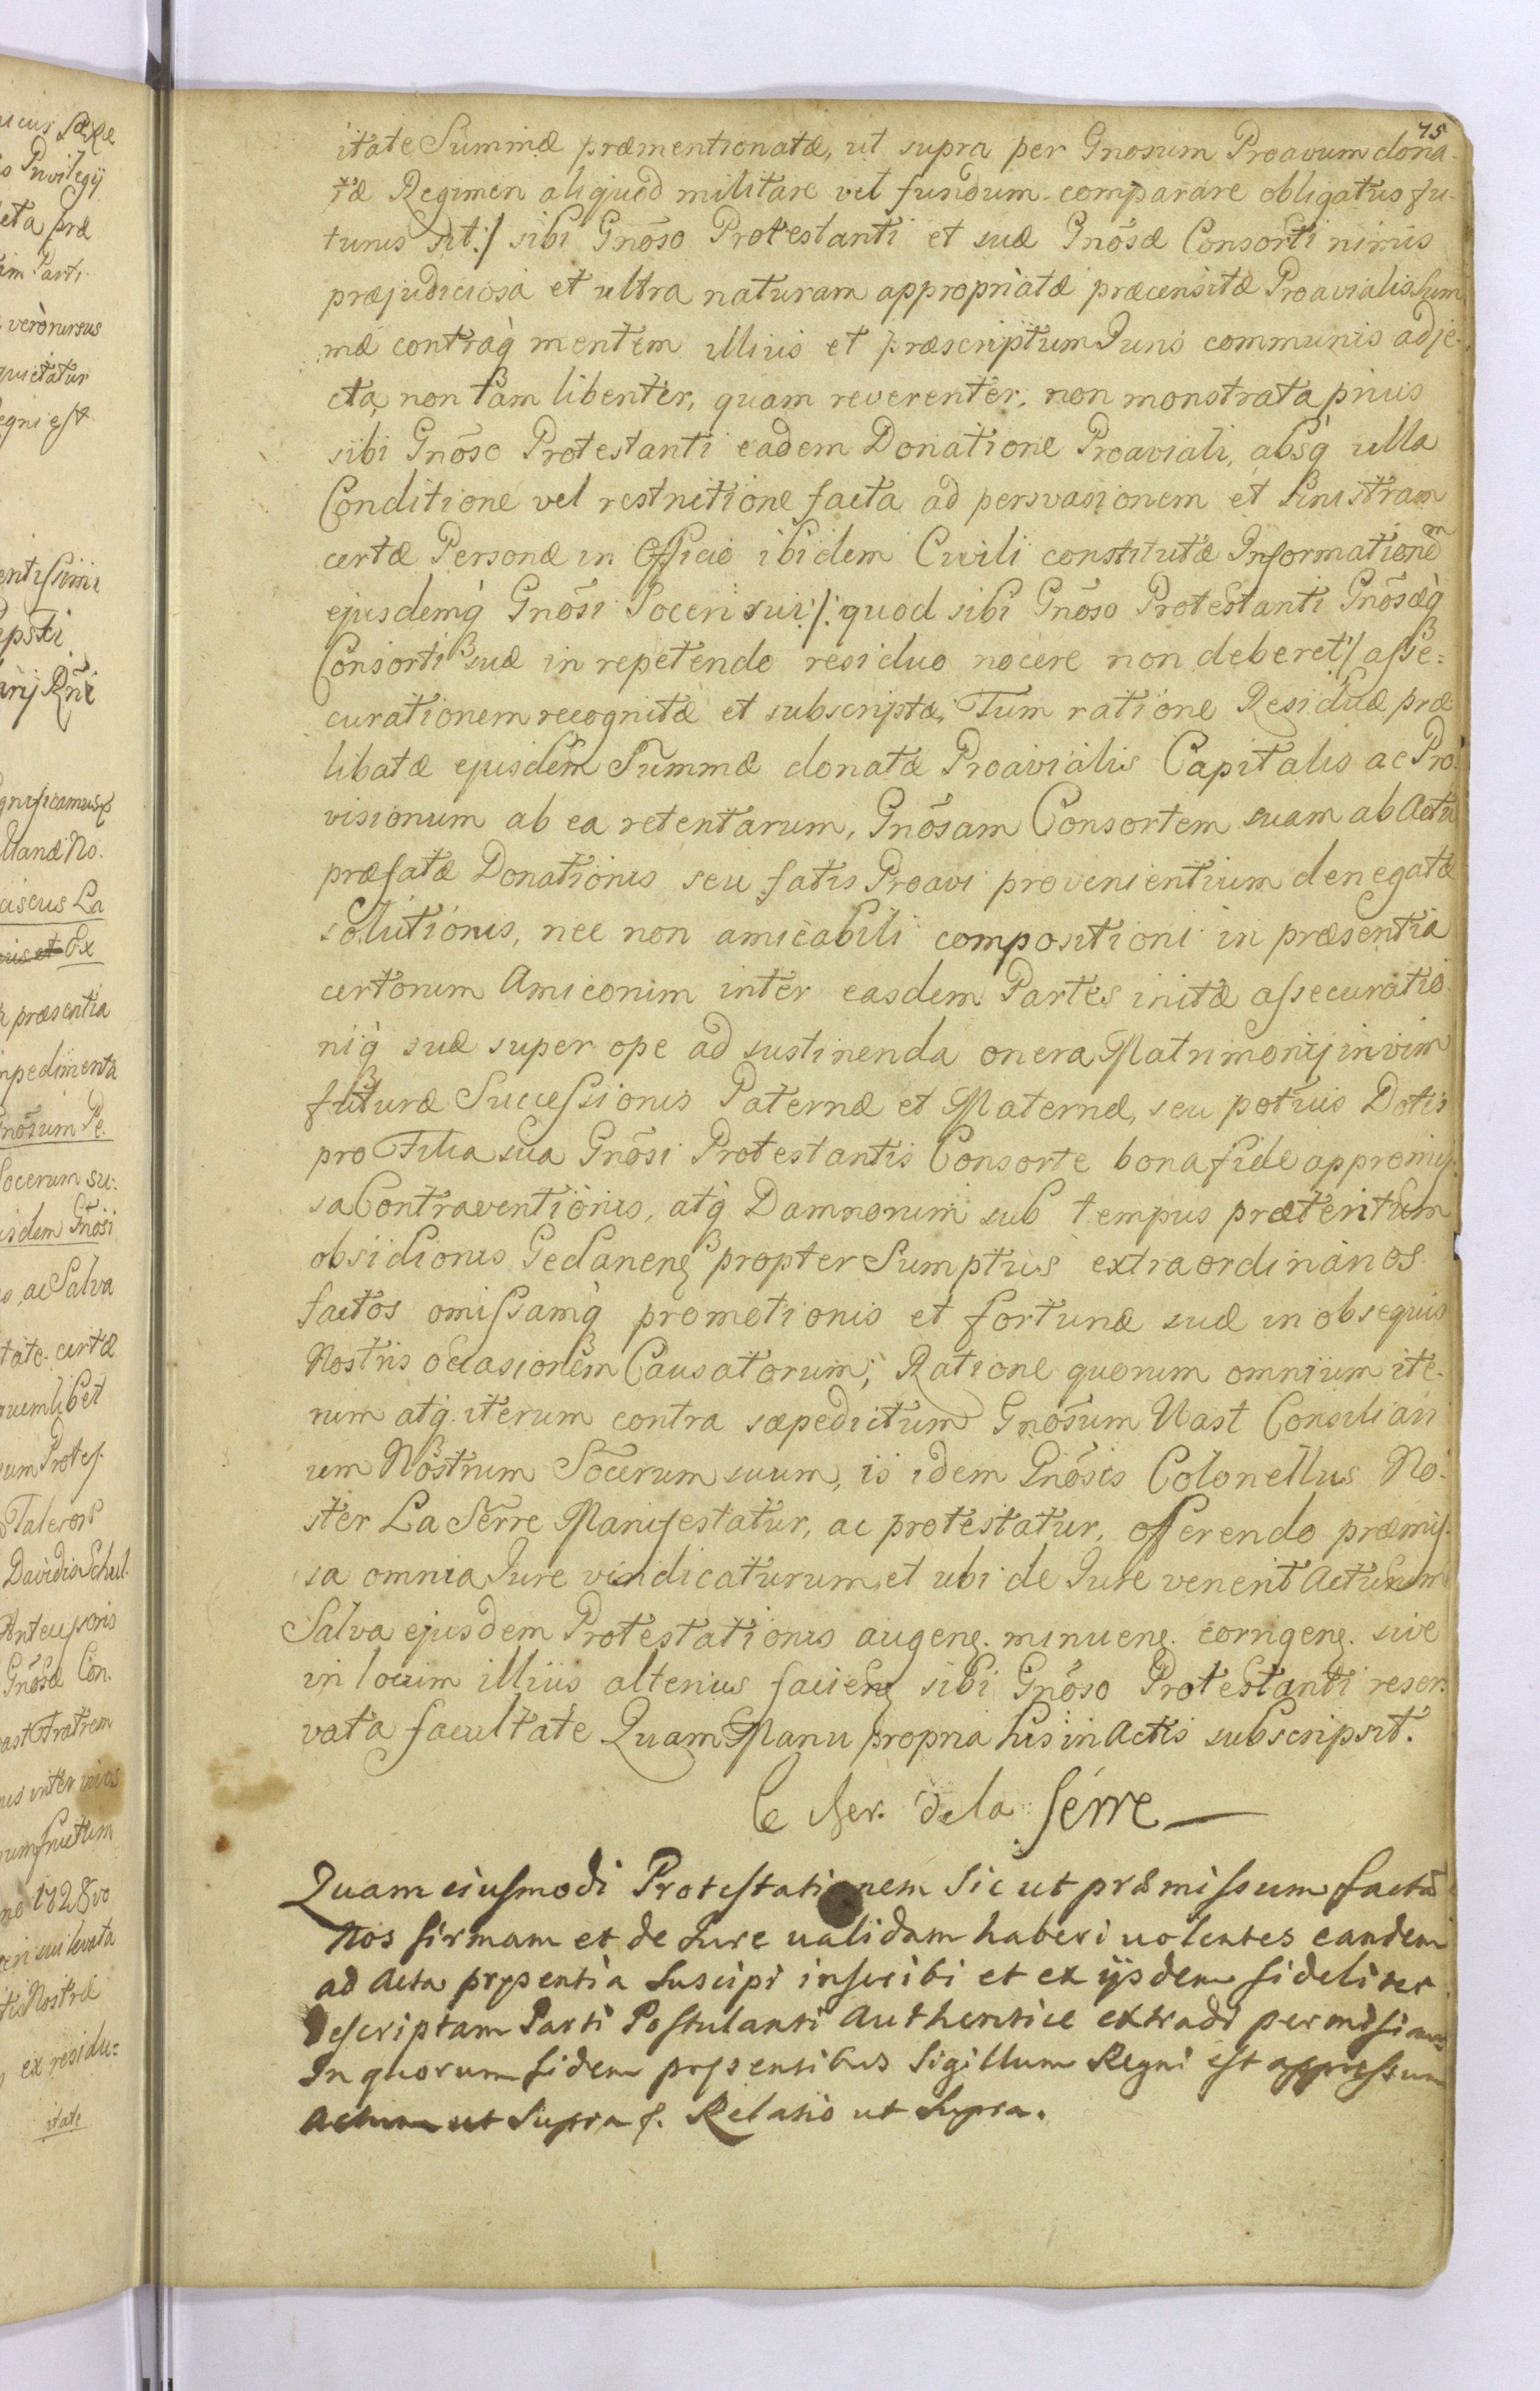 75
itate Summæ præmentionatæ, ut supra per Gnosum Proavum dona-
tæ Regimen aliquod militare vel fundum comparare obligatus fu-
turus sit:/ sibi Gnõso Protestanti et suæ Gnõsæ Consorti nimis
præjudiciosa et ultra naturam appropriatæ præcensitæ Proavialis Sum
mæ contraq̀ mentem illius et præscriptum Juris communis adje-
cta, non tam libenter, quam reverenter, non monstrata prius
sibi Gnõso Protestanti eadem Donatione Proaviali, absq̀ ulla
Conditione vel restrictione facta ad persvasionem et sinistram
certæ Personæ in Officio ibidem Civili constitutæ Informationem
ejusdemq̀ Gnõsi Soceri sui /: quod sibi Gnõso Protestanti Gnõsæq̀
Consorti suæ in repetendo residuo nocere non deberet :/ asse=
curationem recognitæ et subscriptæ, Tum ratione Residuæ præ
libatæ ejusdem Summæ donatæ Proavialis Capitalis ac Pro
visionum ab ea retentarum, Gnõsam Consortem suam ab Actu
præfatæ Donationis seu fatis Proavi provenientium denegatæ
solutionis, nec non amicabili compositioni in præsentia
certorum Amicorum inter easdem Partes initæ assecuratio
niq̀ suæ super ope ad sustinenda onera Matrimonij in vim
futuræ Successionis Paternæ et Maternæ, seu potius Dotis
pro Filia sua Gnõsi Protestantis Consorte bona fide appromis-
sa Contraventionis, atq̀ Damnorum sub tempus præteritum
obsidionis Gedanen propter Sumptus extraordinarios
factos omissamq̀ promotionis et fortunæ suæ in obsequis
Nostris occasionem Causatorum, Ratione quorum omnium ite-
rum atq̀ iterum contra sæpedictum Gnõsum Nast Consiliari
um Nostrum Socerum suum, is idem Gnõsis Colonellus No-
ster La Serre Manifestatur, ac protestatur, offerendo præmis-
sa omnia Jure vindicaturum, et ubi de Jure venerit Acturum
Salva ejusdem Protestationis augen. minuen. corrigen. sive
in locum illius alterius facien sibi Gnõso Protestanti reser-
vata facultate Quam Manu propria his in Actis subscripsit.
le cher. de la Sérre
Quam eiusmodi Protestationem Sic ut præmissum factã
Nos firmam et de Jure ualidam haberi uolentes eandem
ad Acta præsentia Suscipi inscribi et ex ijsdem fideliter
Descriptam Parti Postulanti Authentice extradi permisimus
In quorum fidem præsentibus Sigillum Regni est appressum
Actum ut Supra f. Relatio ut Supra.